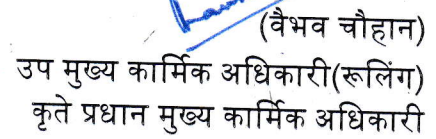 (वैभव चौहान)
उप मुख्य कार्मिक अधिकारी(रूलिंग)
कृते प्रधान मुख्य कार्मिक अधिकारी